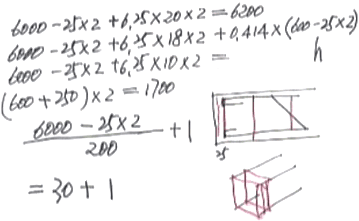 6000-25×2+6.25×20×2=6200
6000-25×2+6.25×18×2+0.414×(600-25×2)
6000-25×2+6.25×10×2=
h
(600+250)×2=1700
6000-25×2
200
+1
25
=30+1